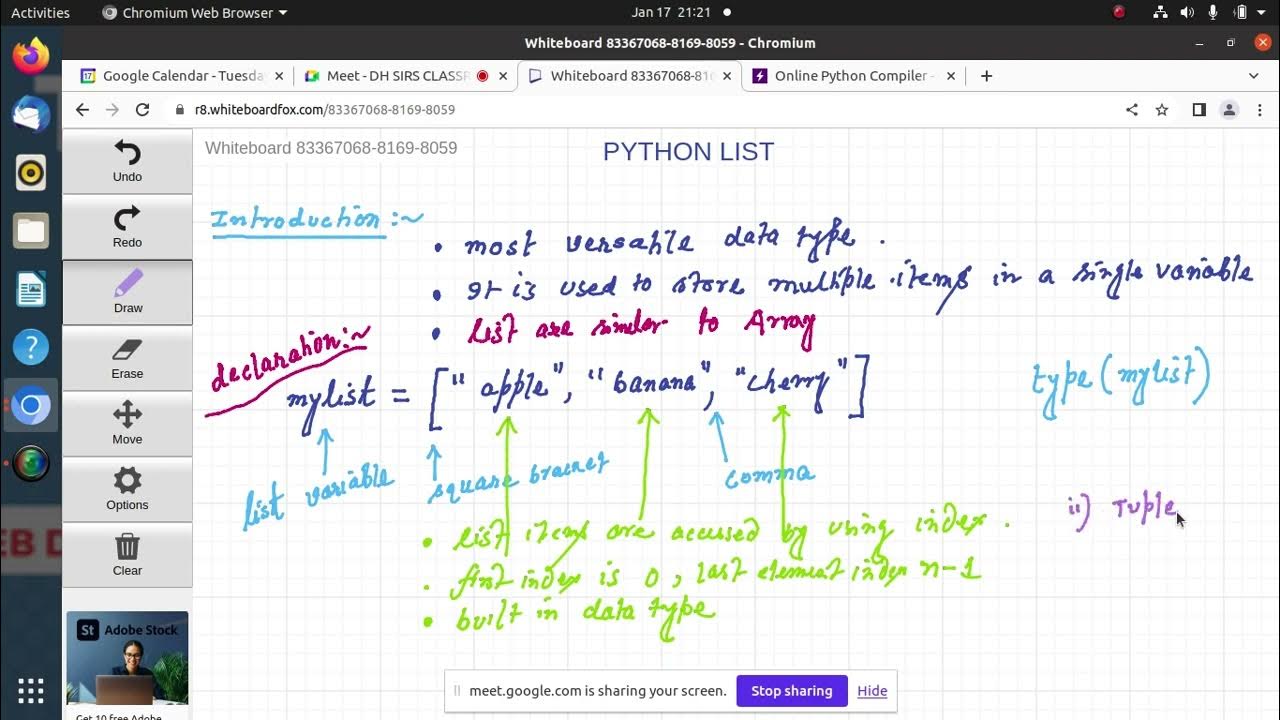 Activities
Chromium Web Browser
Jan 17 21:21
Whiteboard 83367068-8169-8059 - Chromium
17 Google Calendar - Tuesda
Meet - DH SIRS CLASSR
Whiteboard 83367068-816
Online Python Compiler -
r8.whiteboardfox.com/83367068-8169-8059
Undo
Redo
Draw
Erase
Move
Options
Clear
Whiteboard 83367068-8169-8059
PYTHON LIST
Introduction :~
• most versatile data type .
• It is used to store multiple items in a single variable
• list are similar to Array
declaration:~
mylist = [" apple", "banana", "cherry"]
type (mylist)
list variable
square bracket
comma
ii) Tuple
• list items are accused by using index .
• first index is 0 , last element index n-1
• built in data type
EB D
St Adobe Stock
Get 10 free Adobe
meet.google.com is sharing your screen.
Stop sharing
Hide